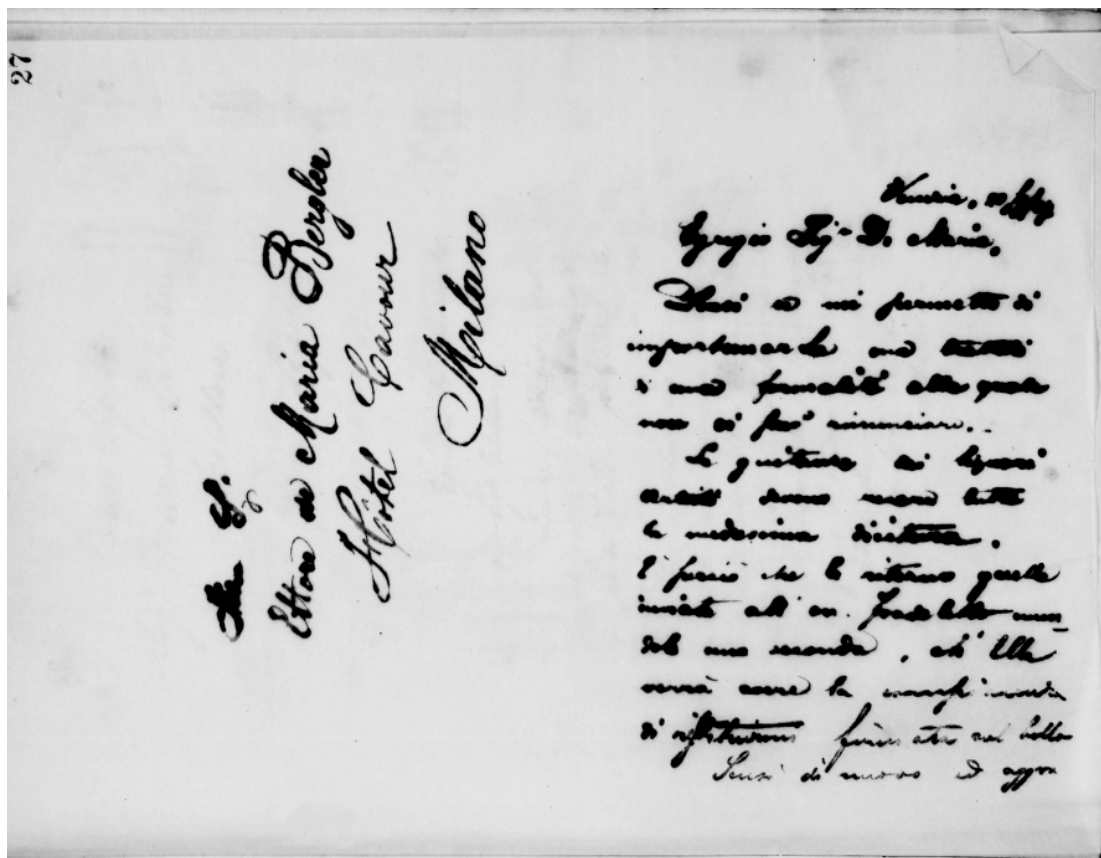 27
Ill. S.
Ettore de Maria Bergler
Hôtel Cavour
Milano
Venezia, 20
Egregio Sig. De Maria,
Scusi se mi permetto di
importunarLa ma trattasi
di una formalità alla quale
non si può rinunciare.
Le quitanze dei Signori
artisti devono recare tutte
la medesima dicitura.
È perciò che le ritorno quella
inviata all' on. Fradeletto unen-
dole una seconda, ch' Ella
vorrà avere la
di restituirmi firmata sul bollo
Scusi di nuovo ed